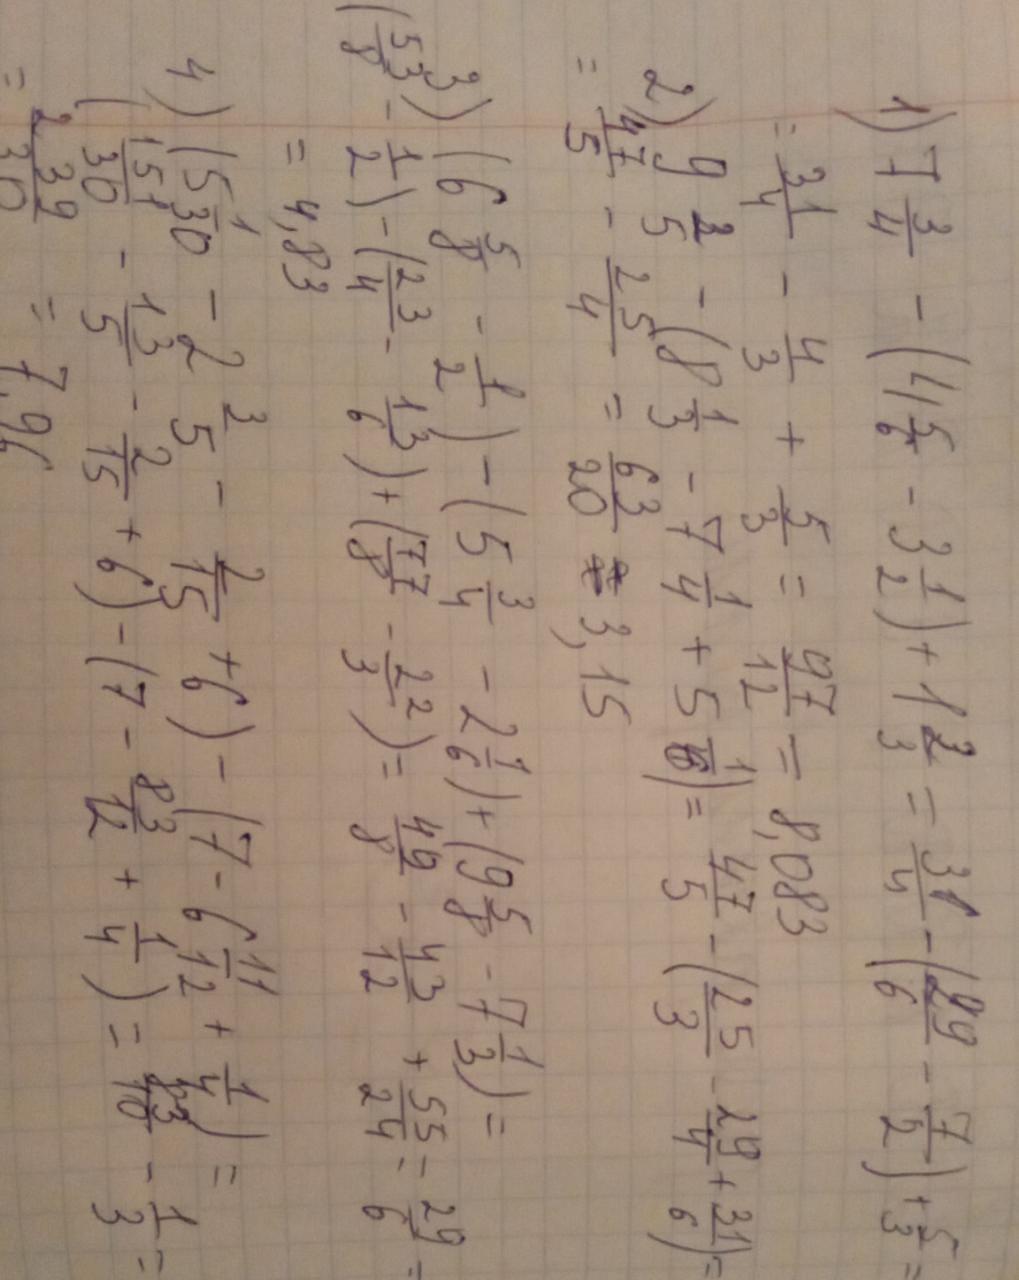 1) 7 3/4 - (4 5/6 - 3 1/2) + 1 2/3 = 31/4 - (29/6 - 7/2) + 5/3 =
= 31/4 - 4/3 + 5/3 = 97/12 = 8,083
2) 9 2/5 - (8 1/3 - 7 1/4 + 5 1/6) = 47/5 - (25/3 - 29/4 + 31/6) =
= 47/5 - 25/4 = 63/20 = 3,15
3) (6 5/8 - 1/2) - (5 3/4 - 2 1/6) + (9 5/8 - 7 1/3) =
(53/8 - 1/2) - (23/4 - 13/6) + (77/8 - 22/3) = 49/8 - 43/12 + 55/24 = 29/6 =
= 4,83
4) (5 1/30 - 2 3/5 - 2/15 + 6) - (7 - 6 11/12 + 1/4) =
(151/30 - 13/5 - 2/15 + 6) - (7 - 83/12 + 1/4) = 83/10 - 1/3 =
= 239/30 = 7,96